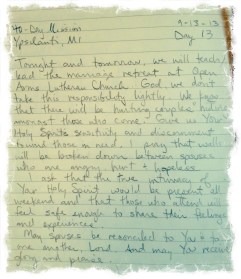 To-Day Mission 9-13-13
Ypsilanti, MI Day 13
Tonight and tomorrow, we will teach/
lead the marriage retreat at Open
Arms Lutheran Church. God, we don't
take this responsibility lightly. We know
that there will be hurting couples
amongst those who come. Give us Your
Holy Spirit's sensitivity and discernment
toward those in need. I pray that walls
will be broken down between spouses
who are angry, hurt + hopeless.
I ask that the true intimacy of
Your Holy Spirit would be present all
weekend and that those who attend will
feel safe enough to share their feelings
and experiences.
May spouses be reconciled to You + to
one another, Lord. And may You receive
glory and praise.